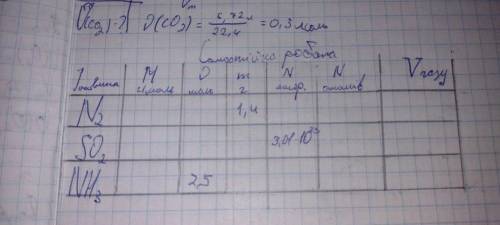 V(CO₂)-? ν(CO₂) = 6,72 л / 22,4 = 0,3 моль
Самостійна робота
Речовина M г/моль ν моль m г N N атомів V газу
N₂ 1,4
SO₂ 3,01·10²³
NH₃ 2,5